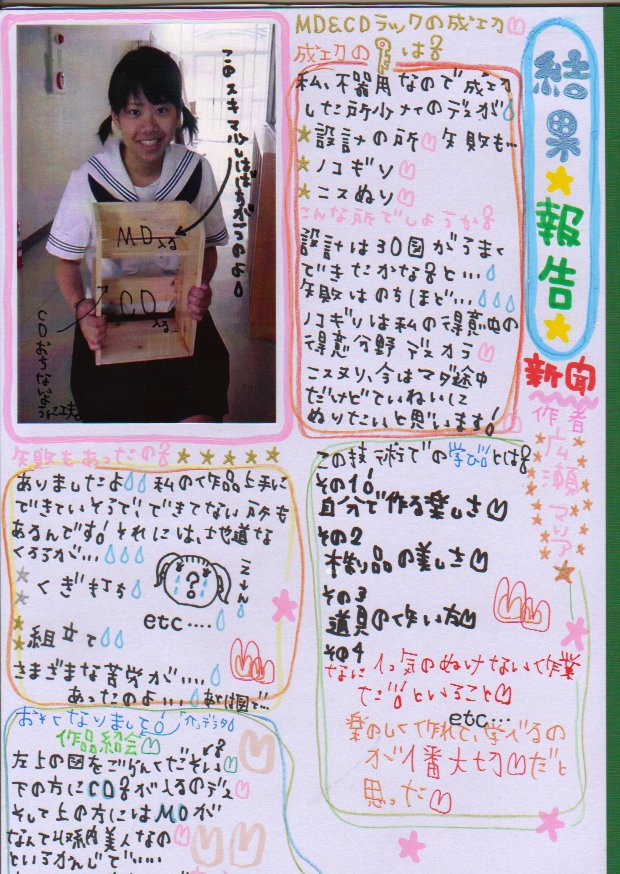 結果★報告★
新聞
作者
広瀬マリア
MD&CDラックの成功
成功の は?
私、不器用なので成功
した所少ナイのデスが
★設計の所 失敗も…
★ノコギリ
★ニスぬり
こんな所でしょうか?
設計は3D図がうまく
できたかな?と…
失敗はのちほど…
ノコギリは私の得意中の
得意分野デスカラ
ニスヌリ、今はマダ途中
だけどていねいに
ぬりたいと思います!
このスキマ
MD入る
CD入る
CDおちないよ
うに工夫。
失敗もあったの?
ありましたよ 私の作品上手に
できていそうで、できてない所も
あるんです!それには、地道な
くろうが…
★くぎ打ち
etc....
★組立て
さまざまな苦労が….
あったのよ... あとは図で…
この技術での学びとは?
その1!
自分で作る楽しさ
その2
木製品の美しさ
その3
道具の使い方
その4
なに1つ気のぬけない作業
だ!!ということ
etc…
楽のしく作れて、学べるの
が1番大切だと
思った
おそくなりまして!
作品紹会
左上の図をごらんください
下の方にCD?が入るのデス
そして上の方にはMDが
なんて収納美人なの
というかんじで……